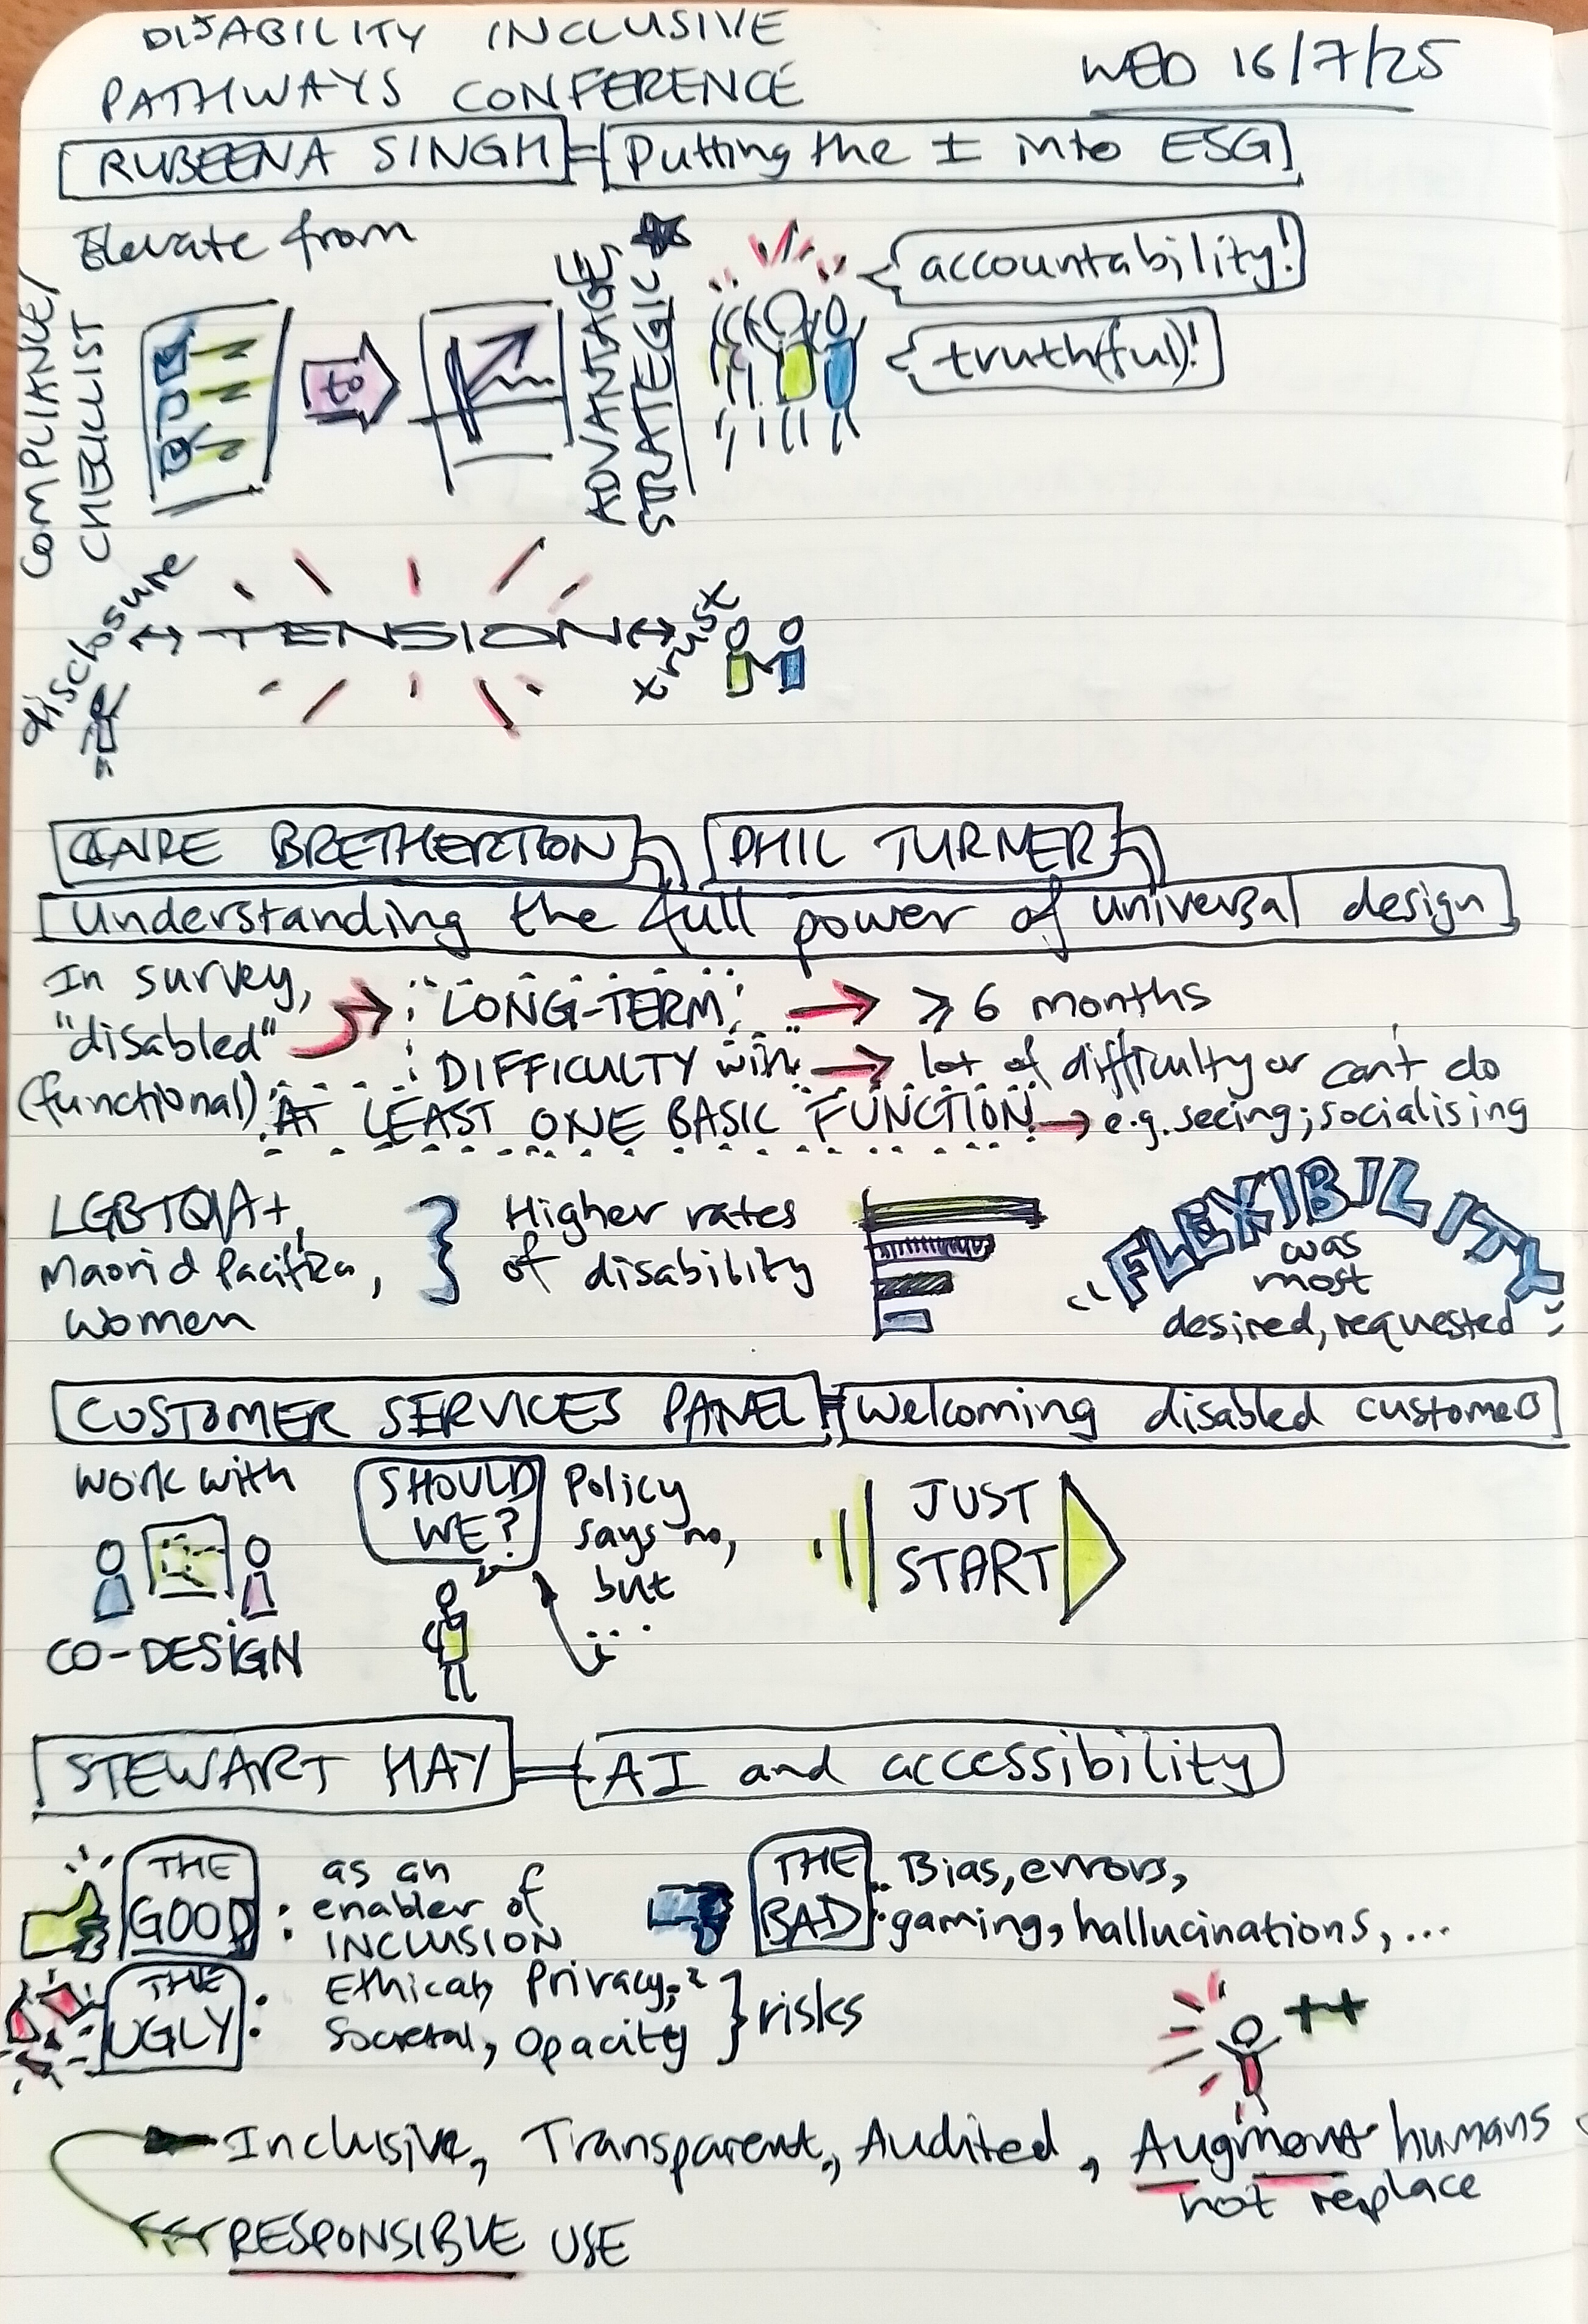 DISABILITY INCLUSIVE
PATHWAYS CONFERENCE
WED 16/7/25
RUBEENA SINGH
Putting the I into ESG
Elevate from
COMPLIANCE/
CHECKLIST
to
STRATEGIC
ADVANTAGE
accountability!
truth(ful)!
disclosure
TENSION
trust
CLAIRE BRETHERTON
PHIL TURNER
Understanding the full power of universal design
In survey,
"disabled"
(functional)
LONG-TERM
≥ 6 months
DIFFICULTY with
lot of difficulty or can't do
AT LEAST ONE BASIC FUNCTION
e.g. seeing; socialising
LGBTQIA+,
Maori & Pacifika,
women
Higher rates
of disability
FLEXIBILITY
was
most
desired, requested
CUSTOMER SERVICES PANEL
Welcoming disabled customers
Work with
CO-DESIGN
SHOULD
WE?
Policy
says no,
but
...
JUST
START
STEWART HAY
AI and accessibility
THE
GOOD :
as an
enabler of
INCLUSION
THE
BAD :
Bias, errors,
gaming, hallucinations, ...
THE
UGLY :
Ethical, Privacy,
Societal, Opacity
risks
++
Inclusive, Transparent, Audited, Augment humans
not replace
RESPONSIBLE USE